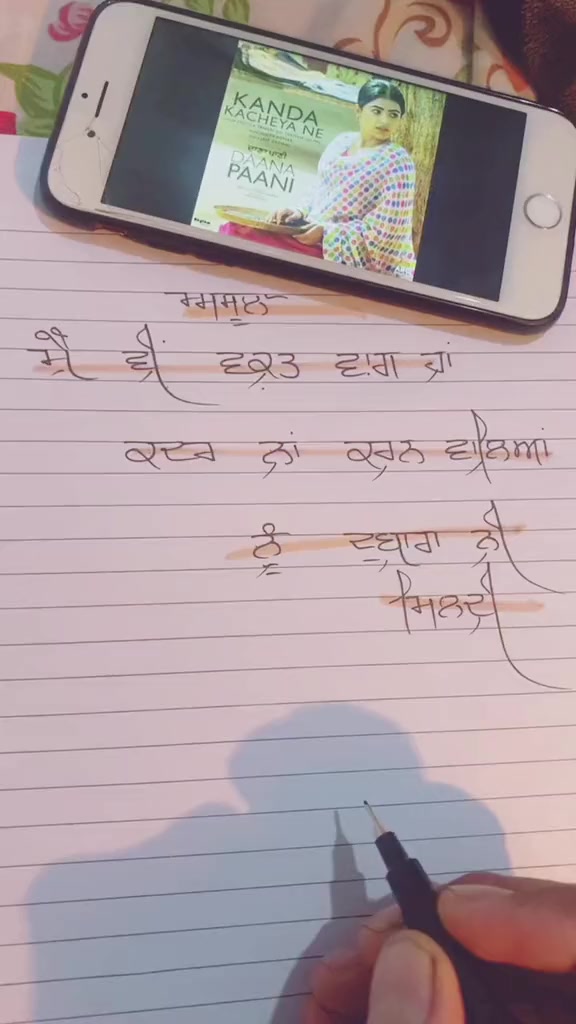 KANDA
KACHEYA NE
ਦਾਣਾ ਪਾਣੀ
DAANA
PAANI
ਮੈਂ ਵੀ ਵਕਤ ਵਾਂਗ ਹਾਂ
ਕਦਰ ਨਾਂ ਕਰਨ ਵਾਲਿਆਂ
ਨੂੰ ਦੁਬਾਰਾ ਨੀ
ਮਿਲਦੀ